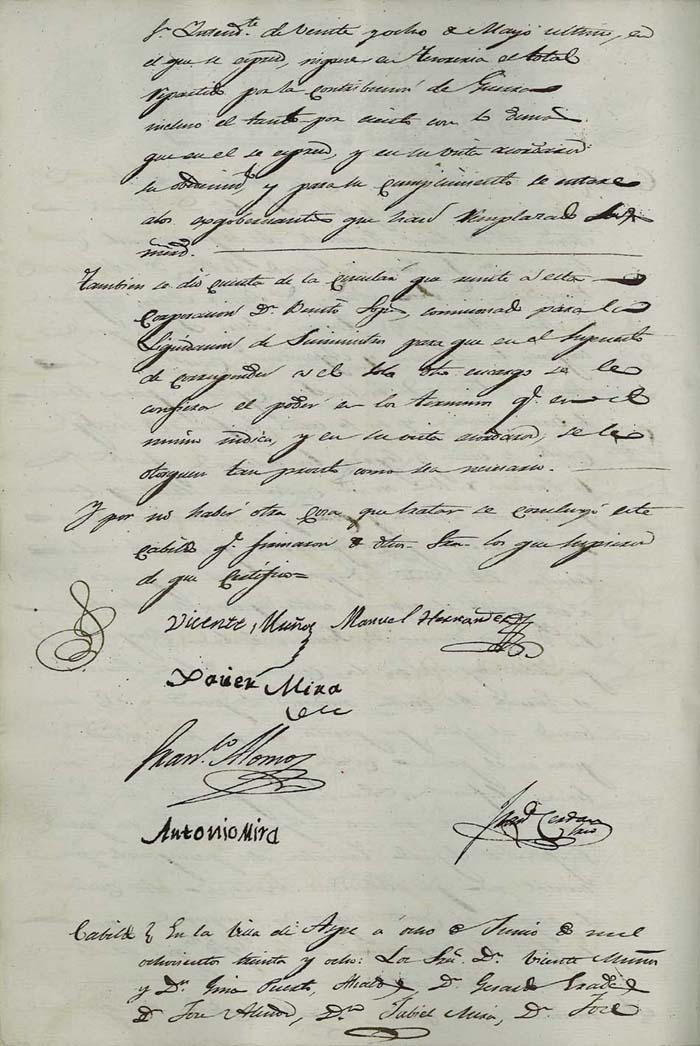 Intend.te de veinte y ocho de Mayo ultimo, en
el que se espresa, ingrese en Tesoreria el total
repartido por la contribucion de Guerra
incluso el tanto por ciento con lo demas
que en el se espresa, y en su vista acordaron
su obedecim.to y para su cumplimiento se
alos que han
También se dio cuenta de la Circular que remite a esta
Corporacion D.n Benito comisionado para la
Liquidacion de Suministros para que en el supuesto
de corresponder a el solo dho encargo se le
confiera el poder en los terminos q.e en el
mismo indica, y en su vista acordaron, se le
otorguen tan pronto como sea necesario.
Y por no haber otra Cosa que tratar se concluyó este
Cabildo q.e firmaron de dhos Sres. los que supieron
de que Certifico=
Vicente Muñoz Manuel Hernandez
Xavier Mira
Fran.co Alonso
Antonio Mira
Cerdan
Srio
Cabildo En la Villa de Aspe á ocho de Junio de mil
ochocientos treinta y ocho: Los Sres. D.n Vicente Muñoz
y D.n Gines Puerto, Alcaldes, D.n Gerardo
D.n Jose D.n Mira, D.n Jose